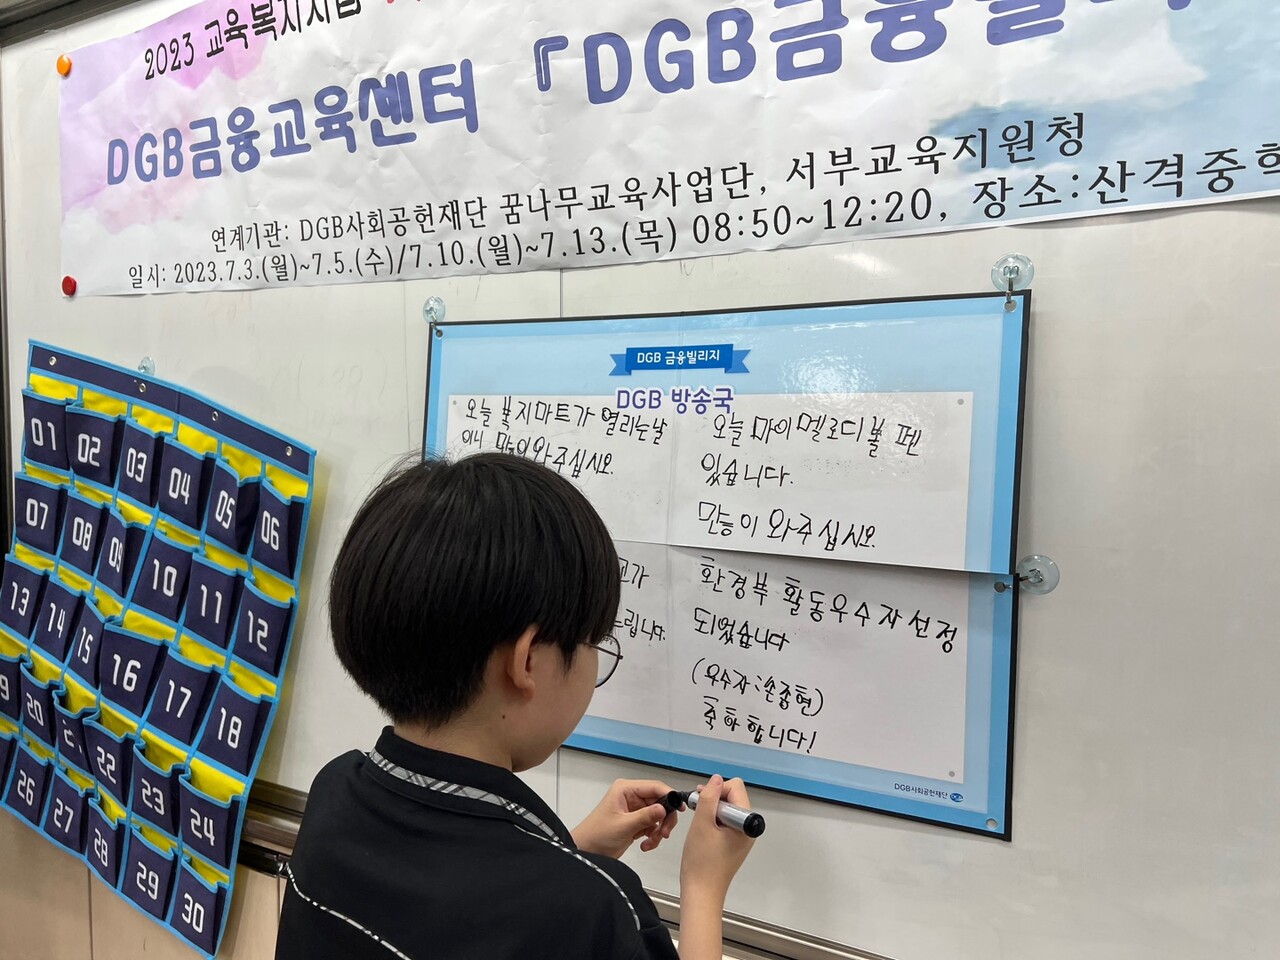 2023 교육복지사업
DGB금융교육센터 『DGB금융빌리지
연계기관: DGB사회공헌재단 꿈나무교육사업단, 서부교육지원청
일시: 2023.7.3.(월)~7.5.(수)/7.10.(월)~7.13.(목) 08:50~12:20, 장소:산격중학
DGB 금융빌리지
DGB 방송국
오늘 복지마트가 열리는날
이니 많이와주십시오.
오늘 마이멜로디볼펜
있습니다.
만능이 와주십시오.
고가
드립니다.
환경부 활동우수자선정
되었습니다
(우수자:손종현)
축하합니다!
DGB사회공헌재단 DGB
01 02 03 04 05 06
07 08 09 10 11 12
13 14 15 16 17 18
19 20 21 22 23 24
26 27 28 29 30